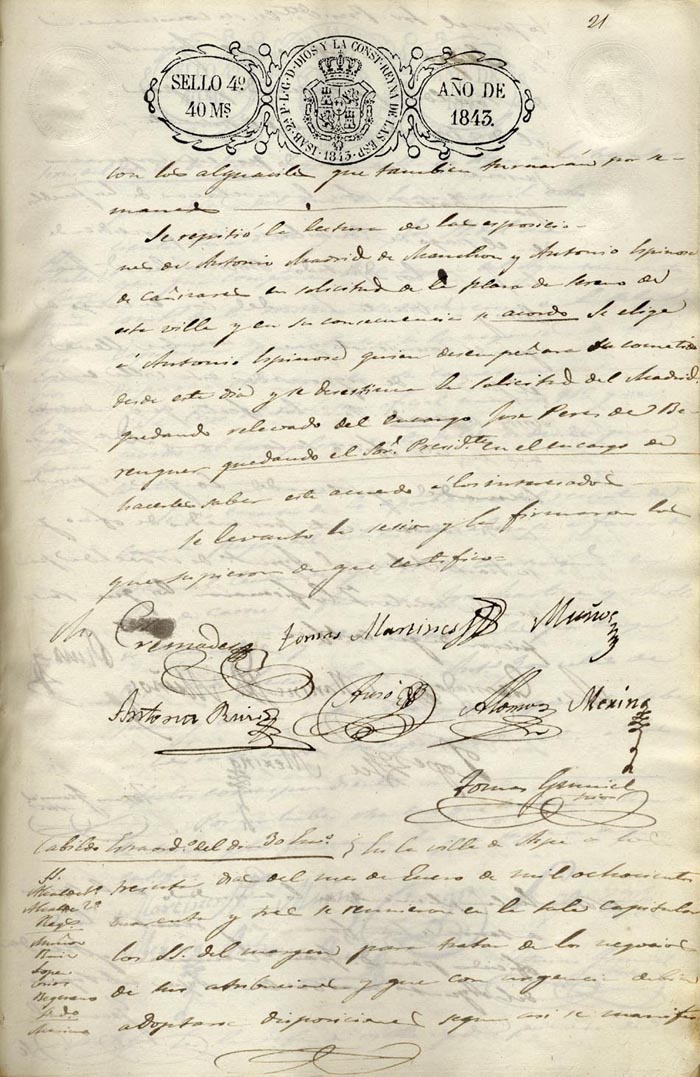 21
SELLO 4º
40 Ms.
ISAB. 2ª P. L. G. D. DIOS Y LA CONST. REYNA DE LAS ESP.
1843.
AÑO DE
1843.
con los alguaciles que tambien turnarán por se-
manas
Se repitió la lectura de las esposicio-
nes de Antonio Madrid de Manchon y Antonio Espinosa
de Cañizares en solicitud de la plaza de Sereno de
esta villa y en su consecuencia se acordó Se elige
á Antonio Espinosa quien desempeñara su cometido
desde este dia y se desestima la solicitud del Madrid
quedando relevado del encargo Jose Peres de Be-
renguer quedando el Sor. Presidte. en el encargo de
hacerles saber este acuerdo á los interesados
Se levanto la sesion y la firmaron los
que supieron de que certifico=
Cremades Tomas Martines Muñoz
Antonio Ruiz Asis Alonso Mexina
Tomas
Cabildo Estraordo. del dia 30 Eno. En la villa de Aspe á los
SS.
Alcalde 1º
Alcalde 2º
Regs.
Muñoz
Ruiz
Lopez
treinta dias del mes de Enero de mil ochocientos
cuarenta y tres se reunieron en la sala Capitular
los SS. del margen para tratar de los negocios
de sus atribuciones y que con urgencia debian
adoptarse disposiciones segun asi se manifestó